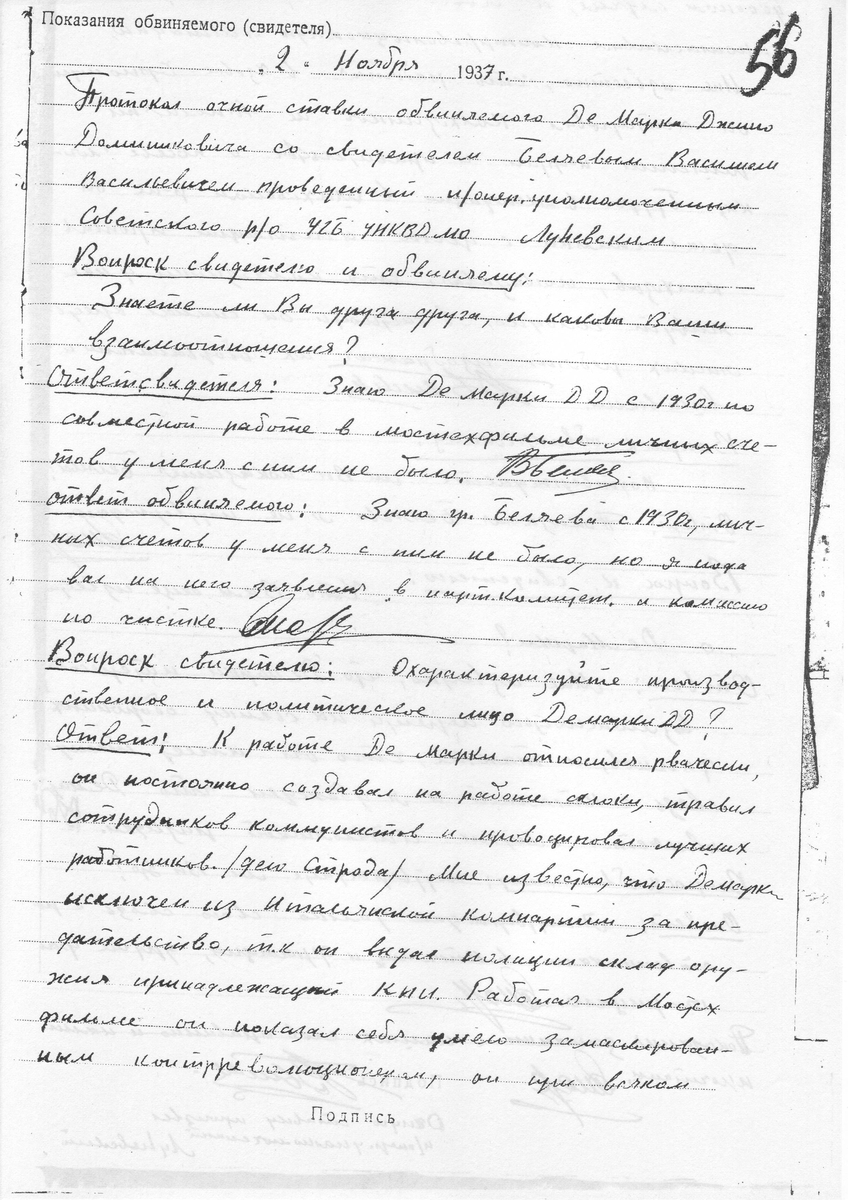 Показания обвиняемого (свидетеля)
56
„2“ Ноября 1937 г.
Протокол очной ставки обвиняемого Де Марки Джино
Доминиковича со свидетелем Беляевым Василием
Васильевичем проведенный п/опер. уполномоченным
Советского р/о УГБ УНКВД мо Луневским
Вопрос к свидетелю и обвиняему:
Знаете ли Вы друга друга, и каковы Ваши
взаимоотношения?
Ответ свидетеля: Знаю Де Марки Д Д с 1930г по
совместной работе в мостехфильме личных сче-
тов у меня с ним не было.
ответ обвиняемого: Знаю гр. Беляева с 1930г, лич-
ных счетов у меня с ним не было, но я пода
вал на него заявления в парт.комитет. и комиссию
по чистке.
Вопрос к свидетелю: Охарактеризуйте производ-
ственное и политическое лицо Демарки ДД?
Ответ: К работе Де Марки относился рвачески,
он постоянно создавал на работе склоки, травил
сотрудников коммунистов и провоцировал лучших
работников. /дело Строда/ Мне известно, что Демарки
исключен из Итальянской компартии за пре-
дательство, т.к он выдал полиции склад ору-
жия принадлежащий КПИ. Работая в Мостех
фильме он показал себя умело замаскирован-
ным контрреволюционером, он при всяком
Подпись